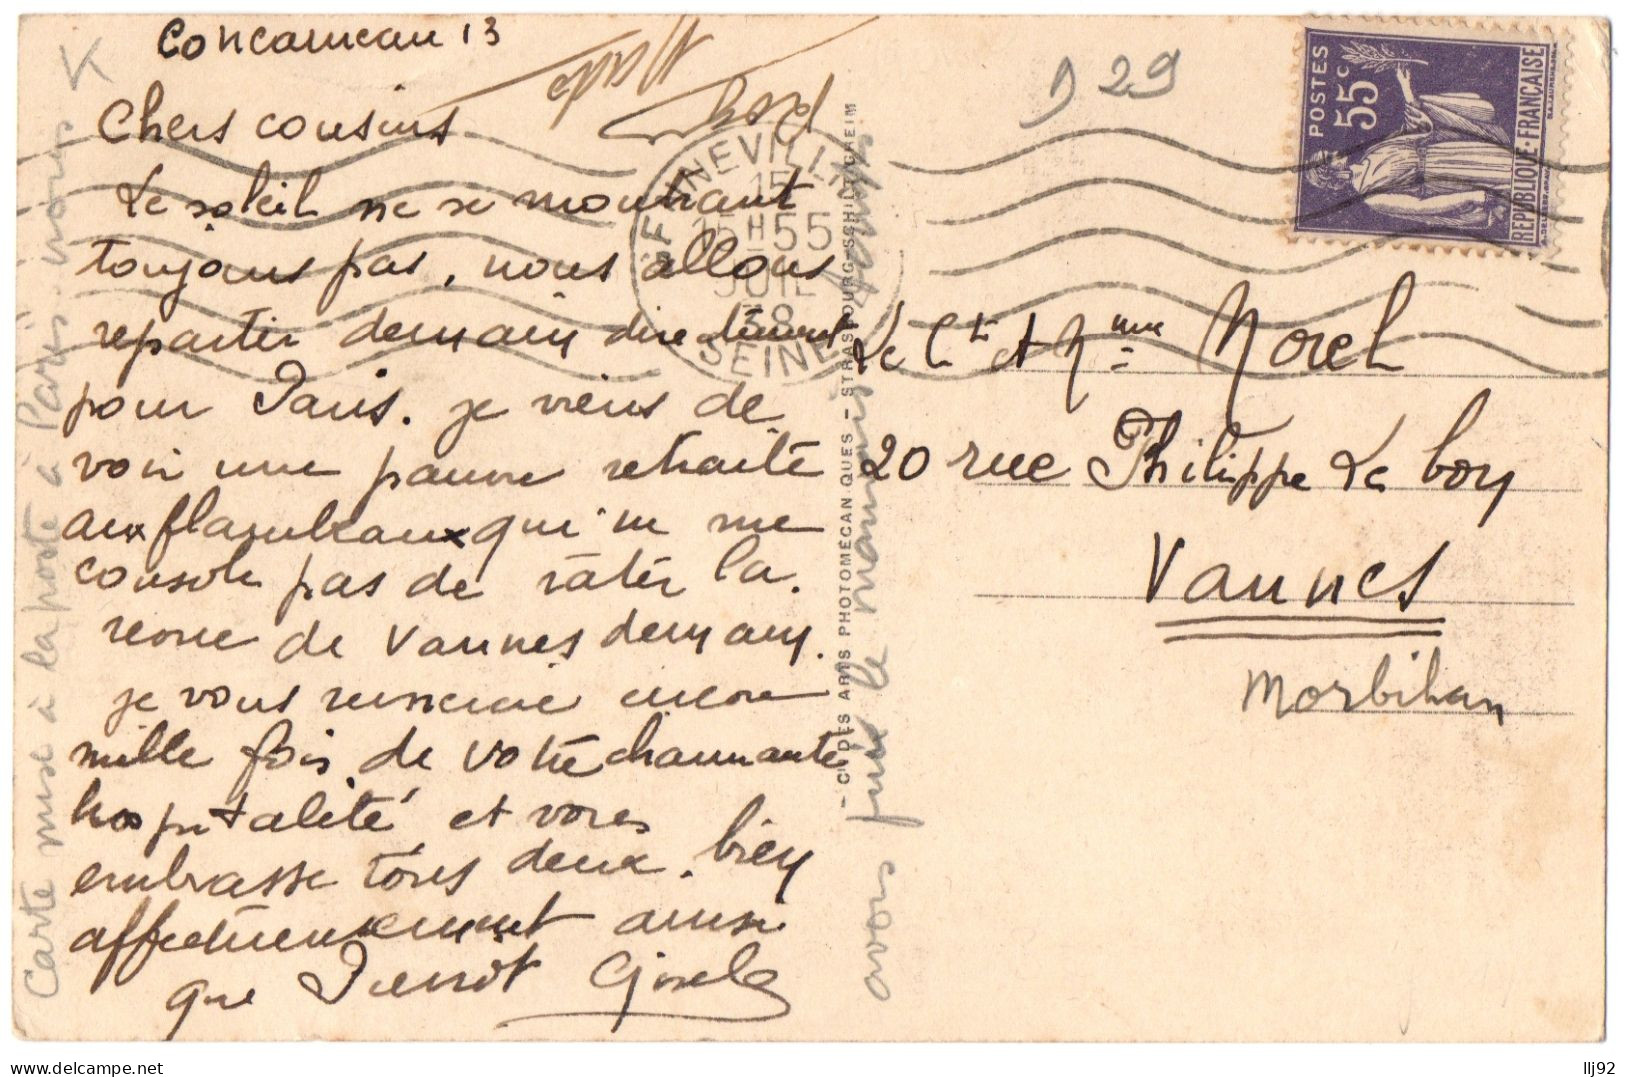 Concarneau 13
Chers cousins
Le soleil ne se montrant
toujours pas, nous allons
repartir demain directement
pour Paris. je viens de
voir une pauvre retraite
aux flambeaux qui ne me
console pas de rater la
revue de Vannes demain.
je vous remercie encore
mille fois de votre charmante
hospitalité et vous
embrasse tous deux. bien
affectueusement ainsi
que Pierrot Gisele
Carte mise à la poste à Paris
avons fait le
- CIE DES ARTS PHOTOMÉCANIQUES - STRASBOURG-SCHILTIGHEIM
D 29
POSTES
55c
REPUBLIQUE·FRANÇAISE
GENNEVILLIERS
15
15H55
JUIL
38
SEINE
Le Ct et Mme Morel
20 rue Philippe Le boy
Vannes
Morbihan
llj92